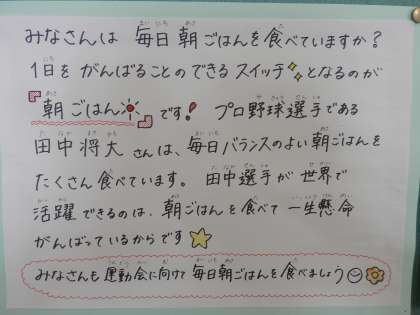 みなさんは 毎日 朝ごはんを食べていますか？
1日を がんばることのできる スイッチ となるのが
朝ごはん です！ プロ野球選手である
田中将大さんは、毎日バランスのよい朝ごはんを
たくさん食べています。 田中選手が世界で
活躍できるのは、朝ごはんを食べて一生懸命
がんばっているからです
みなさんも運動会に向けて毎日朝ごはんを食べましょう